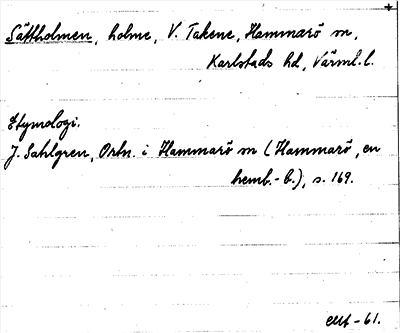 Sättholmen, holme, V. Takene, Hammarö sn,
Karlstads hd, Värml. l.
Etymologi.
J. Sahlgren, Ortn. i Hammarö sn (Hammarö, en
hemb.-b.), s. 169.
-61.